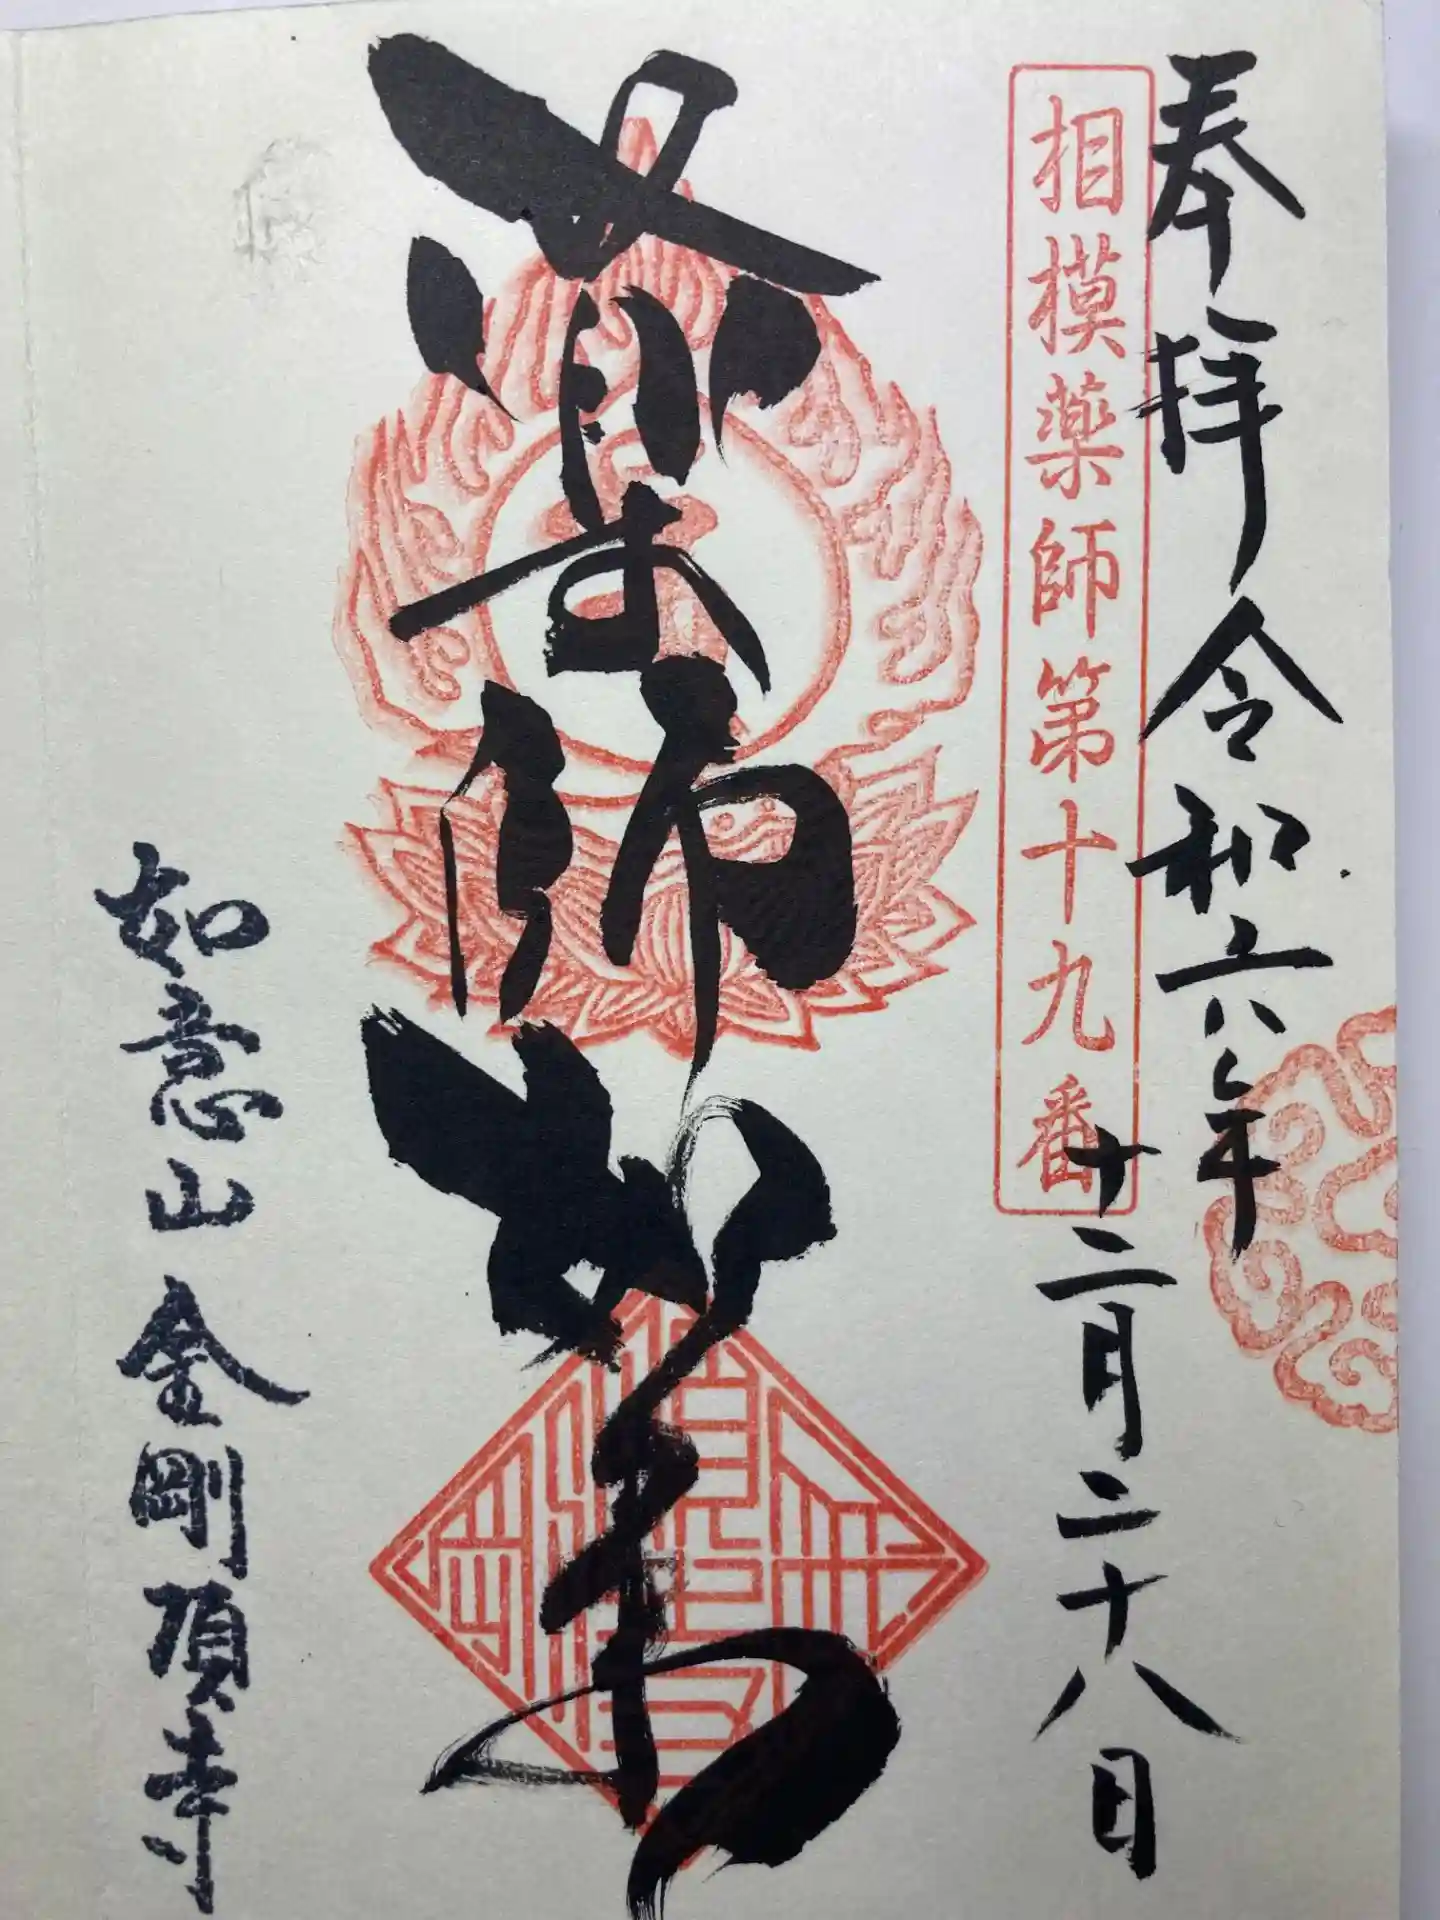 奉拝 令和六年
十二月二十八日
相模薬師第十九番
薬師如来
如意山 金剛頂寺